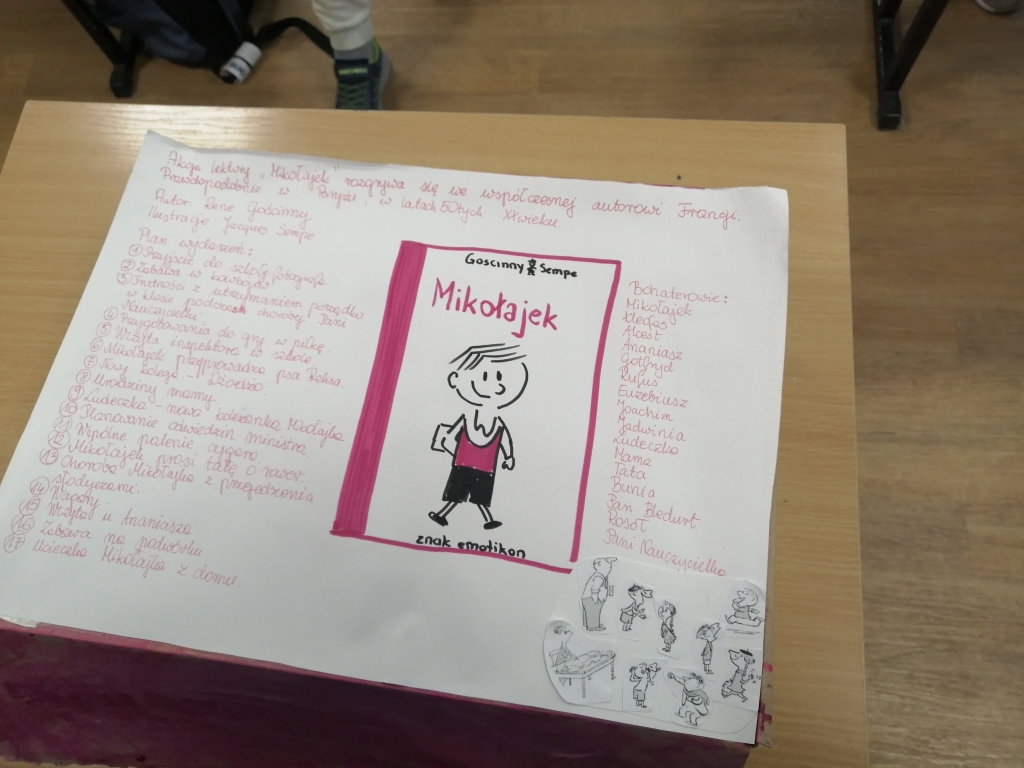 Akcja lektury "Mikołajek" rozgrywa się we współczesnej autorowi Francji.
Prawdopodobnie w Paryżu, w latach 50tych XX wieku.
Autor Rene Gościnny
Ilustracje Jacques Sempe
Plan wydarzeń:
① Przyjście do szkoły fotografa
② Zabawa w kowbojów
③ Trudności z utrzymaniem porządku
w klasie podczas choroby Pani
Nauczycielki.
④ Przygotowania do gry w piłkę.
⑤ Wizyta inspektora w szkole
⑥ Mikołajek przyprowadza psa Reksa.
⑦ Nowy kolega - Dżodżo.
⑧ Urodziny mamy.
⑨ Ludeczka - nowa koleżanka Mikołajka
⑩ Planowanie odwiedzin ministra.
⑪ Wspólne palenie cygara
⑫ Mikołajek prosi tatę o rower.
⑬ Choroba Mikołajka z przejedzenia
słodyczami.
⑭ Wagary.
⑮ Wizyta u Ananiasza.
⑯ Zabawa na podwórku.
⑰ Ucieczka Mikołajka z domu.
Goscinny Sempe
Mikołajek
znak emotikon
Bohaterowie:
Mikołajek
Kleofas
Alcest
Ananiasz
Gotfryd
Rufus
Euzebiusz
Joachim
Jadwinia
Ludeczka
Mama
Tata
Bunia
Pan Bledurt
Rosół
Pani Nauczycielka